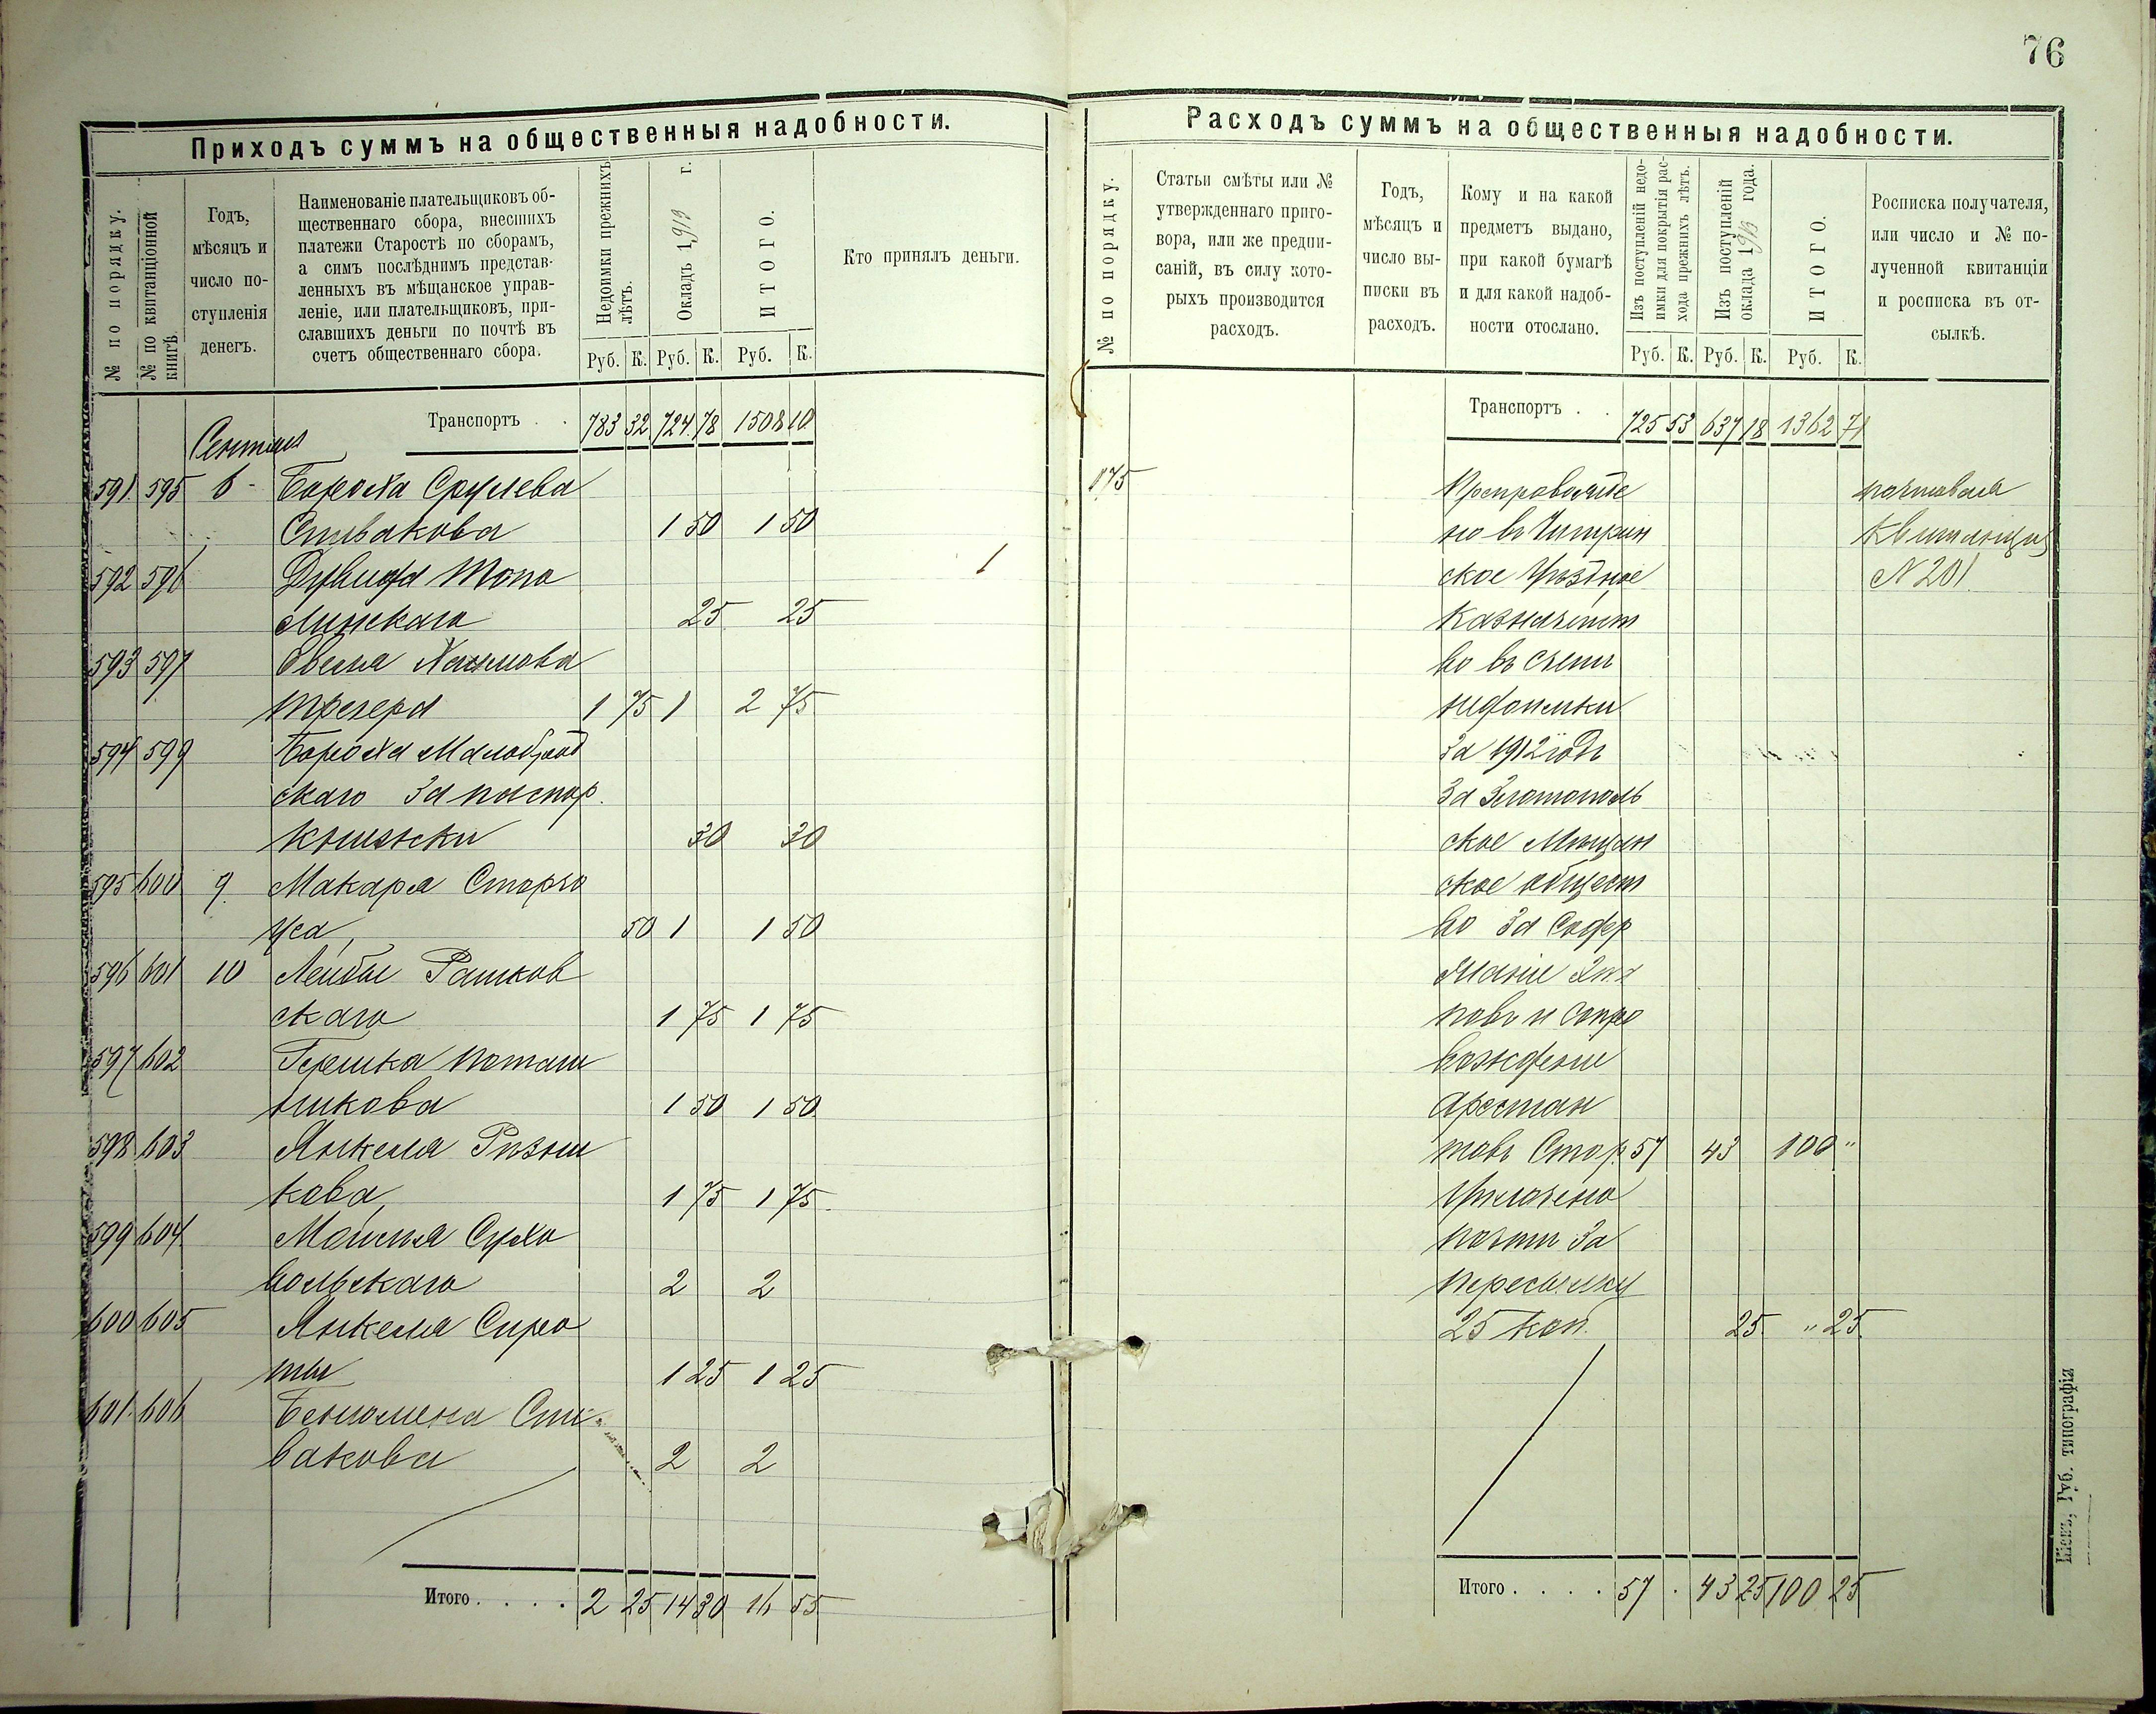 76
Приходъ суммъ на общественныя надобности.
№ по порядку.
№ по квитанціонной книгѣ.
Годъ,
мѣсяцъ и
число по-
ступленія
денегъ.
Наименованіе плательщиковъ об-
щественнаго сбора, внесшихъ
платежи Старостѣ по сборамъ,
а симъ послѣднимъ представ-
ленныхъ въ мѣщанское управ-
леніе, или плательщиковъ, при-
славшихъ деньги по почтѣ въ
счетъ общественнаго сбора.
Недоимки прежнихъ лѣтъ.
Окладъ 1913 г.
ИТОГО.
Кто принялъ деньги.
Руб. К. Руб. К. Руб. К.
Транспортъ . . 783 32 724 78 1508 10
591 595 6 Бороха Срулева
Спивакова 1 50 1 50
592 596 Дувида Топо
линскаго 25 25
593 597
1 75 1 2 75
594 599 Бороха
скаго за паспор.
книжки 30 30
595 600 9. Макара Сторчо
уса 50 1 1 50
596 601 10 Лейбы Рашков
скаго 1 75 1 75
597 602 Гершка Поташ
никова 1 50 1 50
598 603 Янкеля Рѣзни
кова 1 75 1 75
599 604 Мошка Сухо
вольскаго 2 2
600 605 Янкеля Сиро
ты 1 25 1 25
601. 606 Беньомена Спи
вакова 2 2
Итого . . . . 2 25 14 30 16 55
Расходъ суммъ на общественныя надобности.
№ по порядку.
Статьи смѣты или №
утвержденнаго приго-
вора, или же предпи-
саній, въ силу кото-
рыхъ производится
расходъ.
Годъ,
мѣсяцъ и
число вы-
писки въ
расходъ.
Кому и на какой
предметъ выдано,
при какой бумагѣ
и для какой надоб-
ности отослано.
Изъ поступленій недо-
имки для покрытія рас-
хода прежнихъ лѣтъ.
Изъ поступленій
оклада 1913 года.
ИТОГО.
Росписка получателя,
или число и № по-
лученной квитанціи
и росписка въ от-
сылкѣ.
Руб. К. Руб. К. Руб. К.
Транспортъ . . 725 53 637 18 1362 71
175 Препровожде почтовая
но въ Чигрин квитанція
ское Уѣздное N 201.
Казначейст
во въ счетъ
недоимки
за 1912 годъ
за Златополь
ское Мѣщан
ское общест
во за содер
жаніе эта
повъ и сопро
вожденіе
арестан
товъ Стор. 57 43 100 "
Уплачено
почтѣ за
пересылку
25 коп. 25 " 25
Итого . . . . 57 . 43 25 100 25
Кіевъ, Губ. типографія